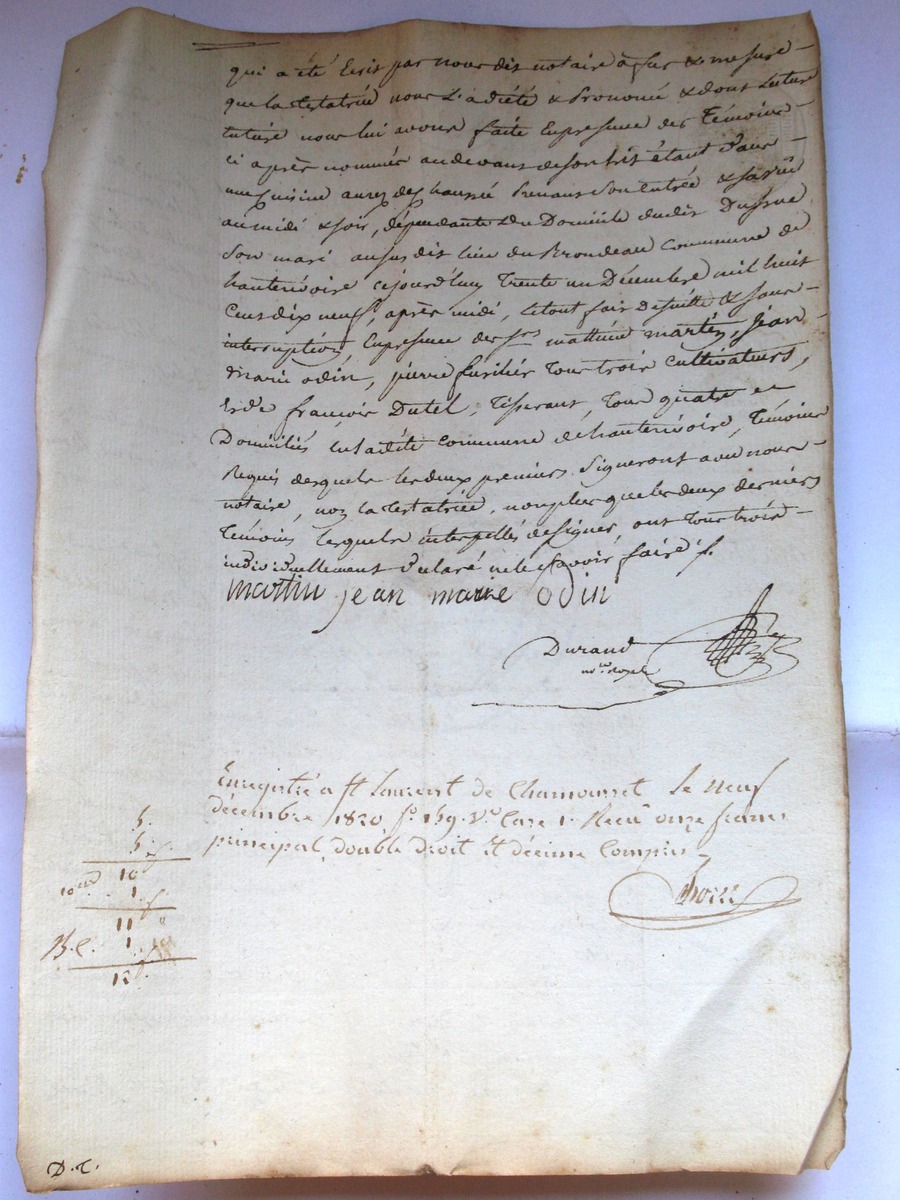 qui a été Ecrit par nous dit notaire à fur & mesure
que la testatrice nous l'a dicté & Prononcé & dont lecture
entiere nous lui avons faite En presence des Témoins
ci après nommés au devant de son lit étant dans
une Cuisine au rez de Chaussé Prenant Son entrée & Jour au
au midi & soir, dépendante du Domicile dudit
Son mari au susdit lieu du Brondeau Commune de
hauterivoire cejourd'huy Trente un Décembre mil huit
Cent dix neuf, après midi, le tout fait de suitte & sans
interruption, En presence des srs mathieu martin, Jean
Marie odin, pierre tous trois Cultivateurs,
& de françois Dutel, Tisserant, tous quatre
Domiciliés en ladite Commune d'hauterivoire, Témoins
Requis desquels les deux premiers Signeront avec nous
notaire, non la testatrice, non plus que les deux derniers
Témoins lesquels interpellés de signer, ont tous trois
individuellement declaré ne le Savoir faire /.
martin jean marie Odin
Durand
nre royal
Enregistré à St Laurent de Chamousset Le Neuf
décembre 1820 fo 159 Vo Case 1. Recu onze francs
principal, double droit et décime Compris
5.
5.
10
1.
11 "
1.
12
D.T.